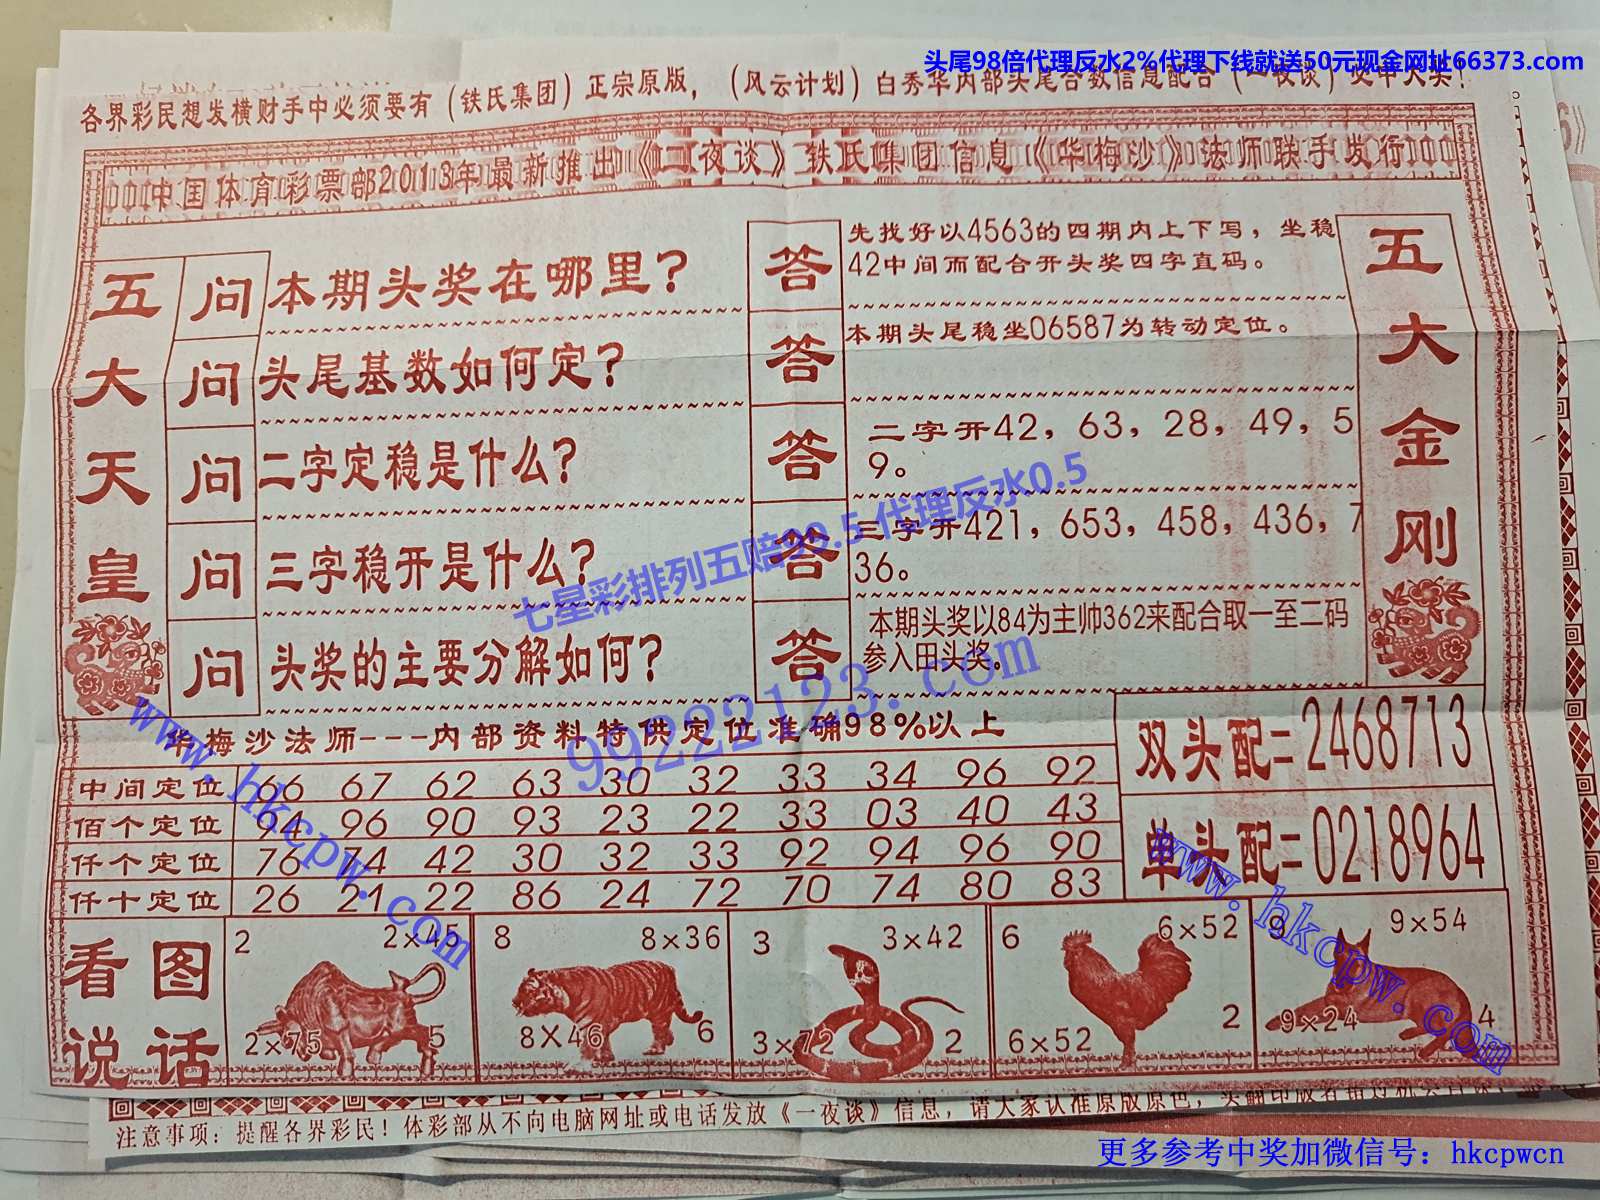 头尾98倍代理反水2%代理下线就送50元现金网址66373.com
各界彩民想发横财手中必须要有（铁氏集团）正宗原版，（风云计划）白秀华内部头尾合数信息配合（一夜谈）必中大奖！
中国体育彩票部2013年最新推出《一夜谈》铁氏集团信息《华梅沙》法师联手发行
五大天皇
问 本期头奖在哪里？
答 先找好以4563的四期内上下写，坐稳
42中间而配合开头奖四字直码。
问 头尾基数如何定？
答 本期头尾稳坐06587为转动定位。
问 二字定稳是什么？
答 二字开42，63，28，49，5
9。
问 三字稳开是什么？
答 三字开421，653，458，436，7
36。
问 头奖的主要分解如何？
答 本期头奖以84为主帅362来配合取一至二码
参入田头奖。
五大金刚
七星彩排列五赔99.5代理反水0.5
99222123.com
华梅沙法师---内部资料特供定位准确98%以上
中间定位 66 67 62 63 30 32 33 34 96 92
佰个定位 64 96 90 93 23 22 33 03 40 43
仟个定位 76 74 42 30 32 33 92 94 96 90
仟十定位 26 21 22 86 24 72 70 74 80 83
双头配=2468713
单头配=0218964
www.hkcpw.com
www.hkcpw.com
看图
说话
2 2×45
2×75 5
8 8×36
8×46 6
3 3×42
3×72 2
6 6×52
6×52 2
9 9×54
9×24 4
注意事项：提醒各界彩民！体彩部从不向电脑网址或电话发放《一夜谈》信息，请大家认准原版原色，
更多参考中奖加微信号：hkcpwcn